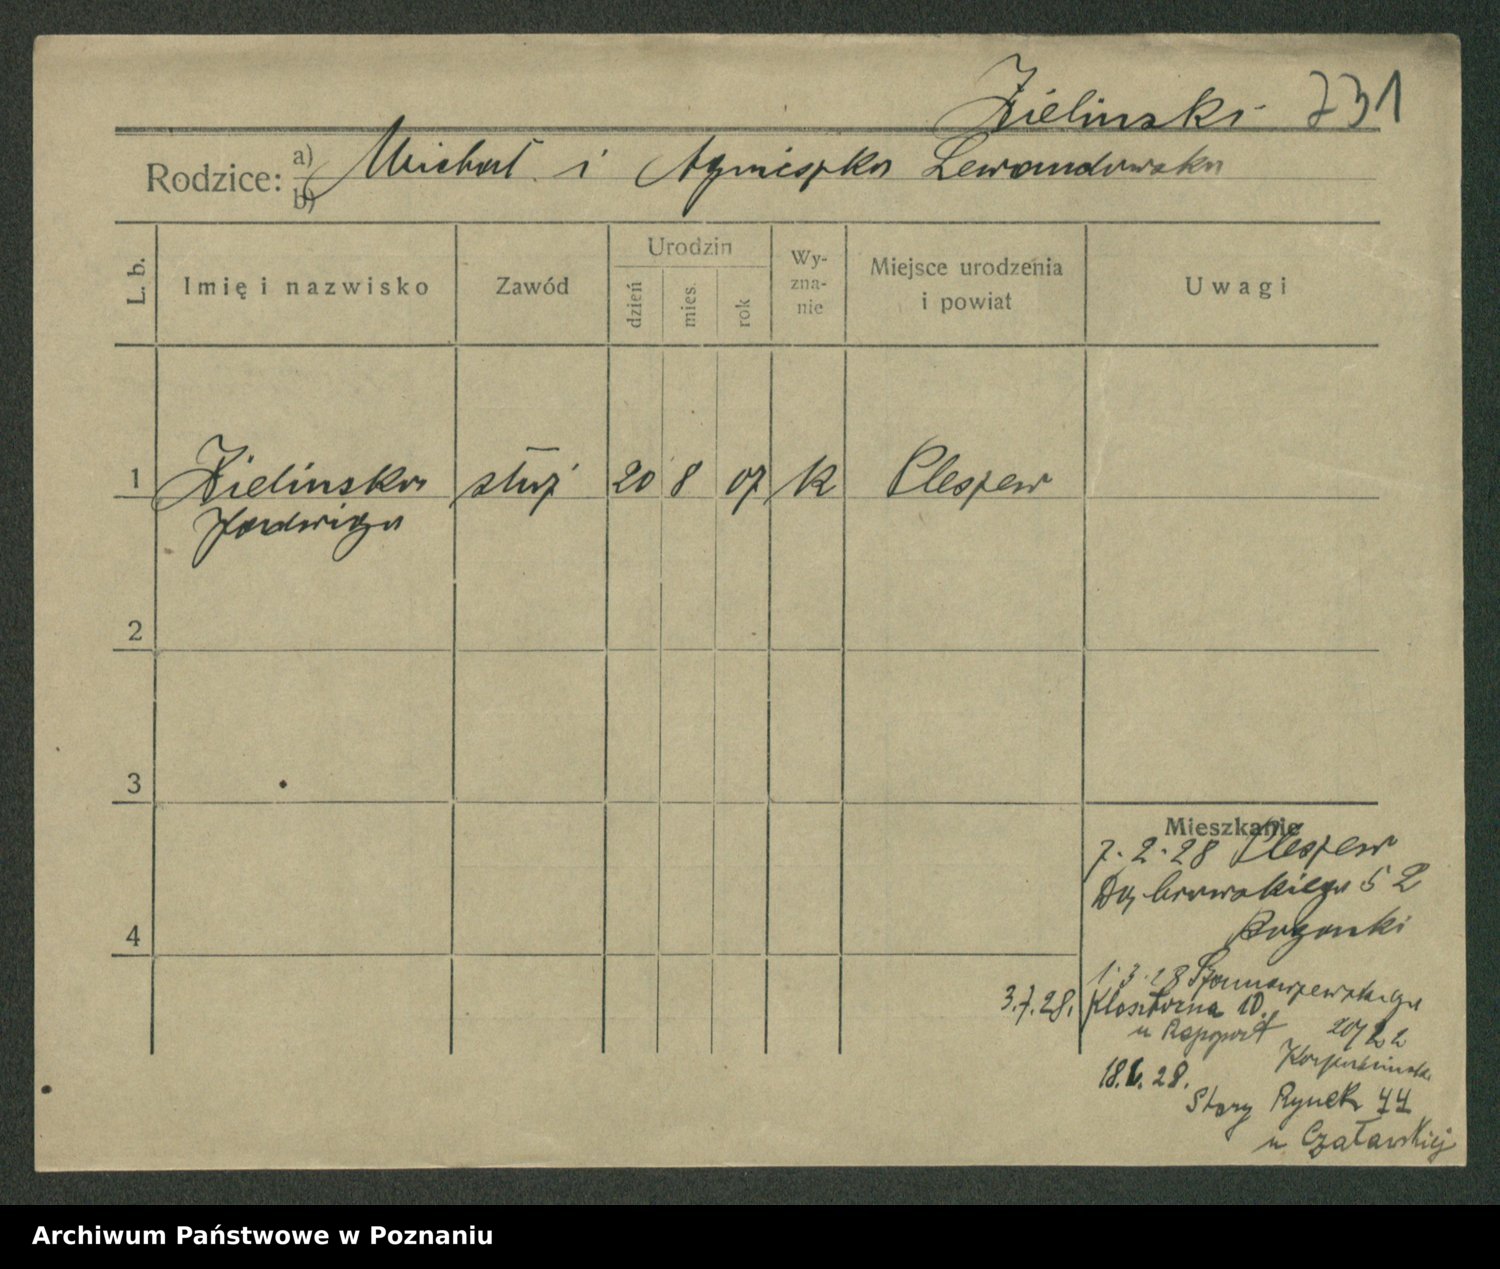 Zielinski 731
Rodzice: a) Michał i Agnieszka Lewandowska
b)
L. b.
Imię i nazwisko
Zawód
Urodzin
dzień
mies.
rok
Wy-
zna-
nie
Miejsce urodzenia
i powiat
Uwagi
1 Zielinska służ 20 8 07 k Pleszew
Jadwiga
2
3
4
Mieszkanie
7.2.28 Pleszew
Dąbrowskiego 52
1.3.28 Szamarzewskiego
3.7.28. Klasztorna 10.
u Rapport 20
18. . 28.
Stary Rynek 77
u Czaławskiej
Archiwum Państwowe w Poznaniu